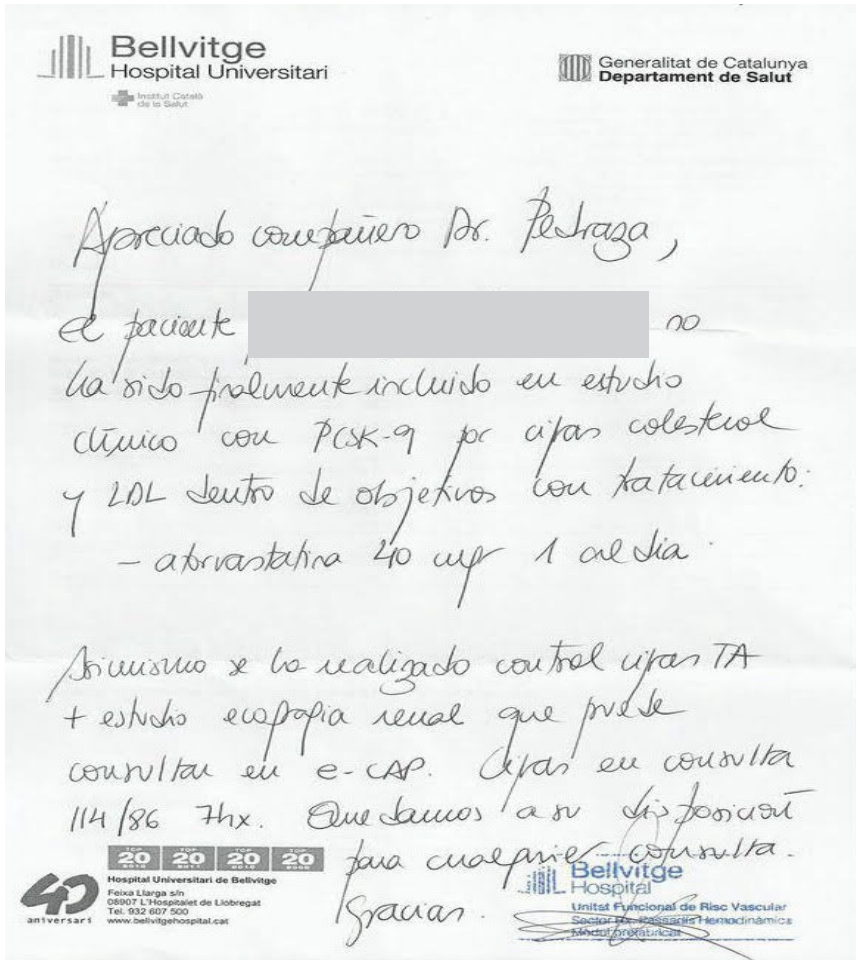 Bellvitge
Hospital Universitari
Institut Català
de la Salut
Generalitat de Catalunya
Departament de Salut
Apreciado compañero Dr. Pedraza,
el paciente no
ha sido finalmente incluido en estudio
clínico con PCSK-9 por cifras colesterol
y LDL dentro de objetivos con tratamiento:
- atorvastatina 40 mgr 1 al dia.
Asimismo se ha realizado control cifras TA
+ estudio ecografia renal que puede
consultar en e-CAP. Cifras en consulta
114/86 7hx. Quedamos a su disposición
para cualquier consulta.
Gracias.
TOP 20 TOP 20 TOP 20 TOP 20
40
aniversari
Hospital Universitari de Bellvitge
Feixa Llarga s/n
08907 L'Hospitalet de Llobregat
Tel. 932 607 500
www.bellvitgehospital.cat
Bellvitge
Hospital
Unitat Funcional de Risc Vascular
Sector Passadís Hemodinàmica
Mòdul prefabricat